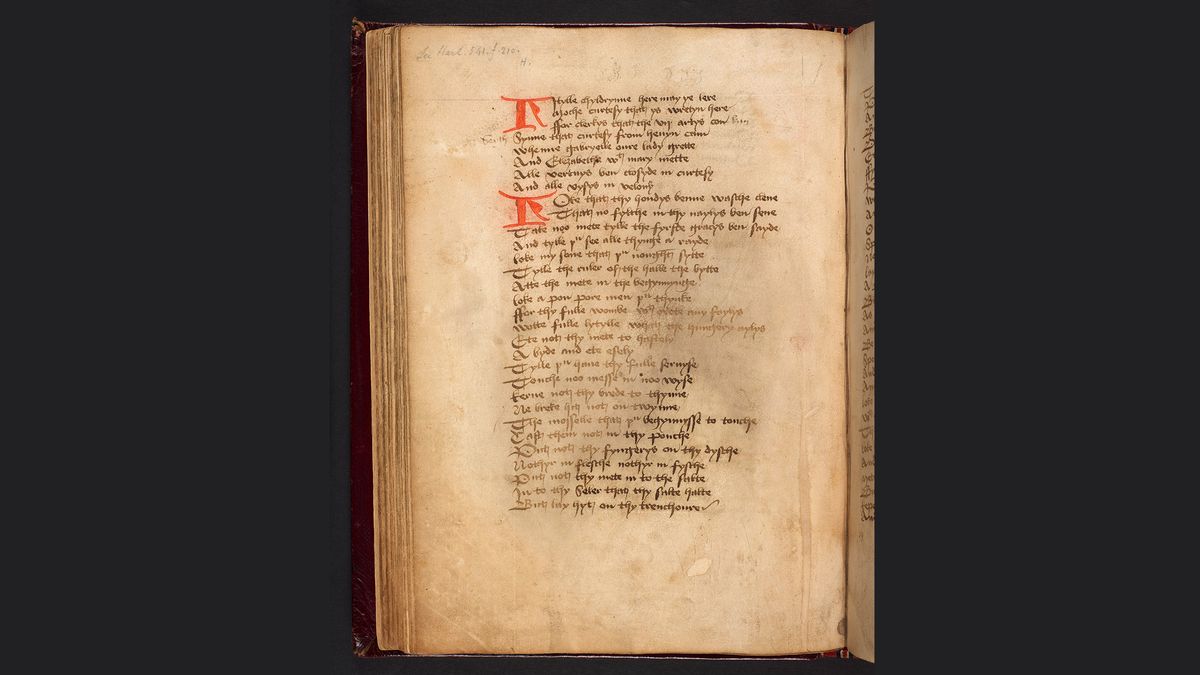 See Harl. 541. f. 210.
H.
Lytylle chyldrynne here may ye lere
Moche curtesy that ys wretyn here
ffor clerkys that the vii artys con
Synne that curtesy from hevyn com
Whenne gabryelle oure lady grette
And Elezabethe wt mary mette
Alle vertuys ben closyde in curtesy
And alle vysys in velony
Loke that thy hondys benne wasche clene
That no fylthe in thy naylys ben sene
Take noo mete tylle the fyrste gracys ben sayde
And tylle þu see alle thynge a rayde
loke my sone that þu nought sytte
Tylle the ruler of the halle the bytte
Atte the mete in the begynnynge
loke a pon pore men þu thynke
ffor thy fulle wombe wt owte any faylys
wotte fulle lytylle what the hungery aylys
Ete not thy mete to hastely
A byde and ete esely
Tylle þu have thy fulle servyse
Touche noo messe in noo wyse
kerve not thy brede to thynne
Ne breke hit not on twynne
The moiselle that þu begynnysse to touche
Cast them not in thy pouche
Put not thy fyngerys on thy dysche
Nothyr in flesche nothyr in fysche
Put not thy mete in to the salte
In to thy Seler that thy salte halte
But lay hyt on thy trenchoure